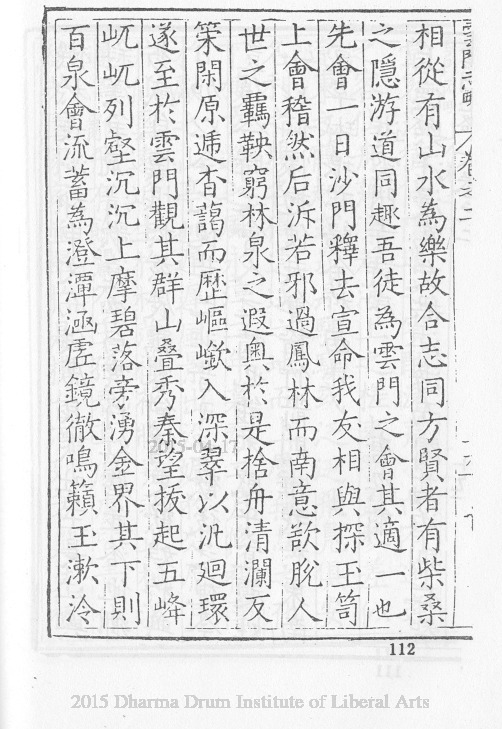 相從有山水為樂故合志同方賢者有柴桑
之隱游道同趣吾徒為雲門之會其適一也
先會一日沙門釋去宣命我友相與探玉笥
上會稽然后泝若邪過鳳林而南意欲脫人
世之羈鞅窮林泉之遐奧於是捨舟清瀾反
策閑原遞杳藹而歷嶇嶔入深翠以汎迴環
遂至於雲門觀其群山疊秀秦望拔起五峰
屼屼列壑沉沉上摩碧落旁湧金界其下則
百泉會流蓄為澄潭涵虛鏡徹鳴籟玉漱泠
112
2015 Dharma Drum Institute of Liberal Arts